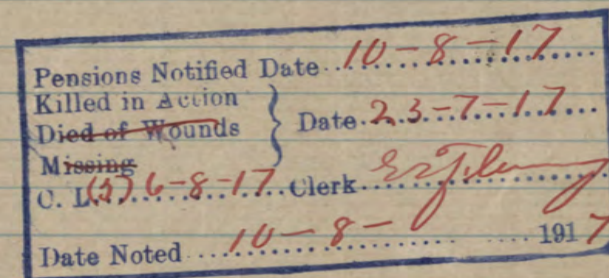 Pensions Notified Date 10-8-17
Killed in Action
Died of Wounds } Date 23-7-17
Missing
C. L. (5) 6-8-17 Clerk
Date Noted 10-8- 1917